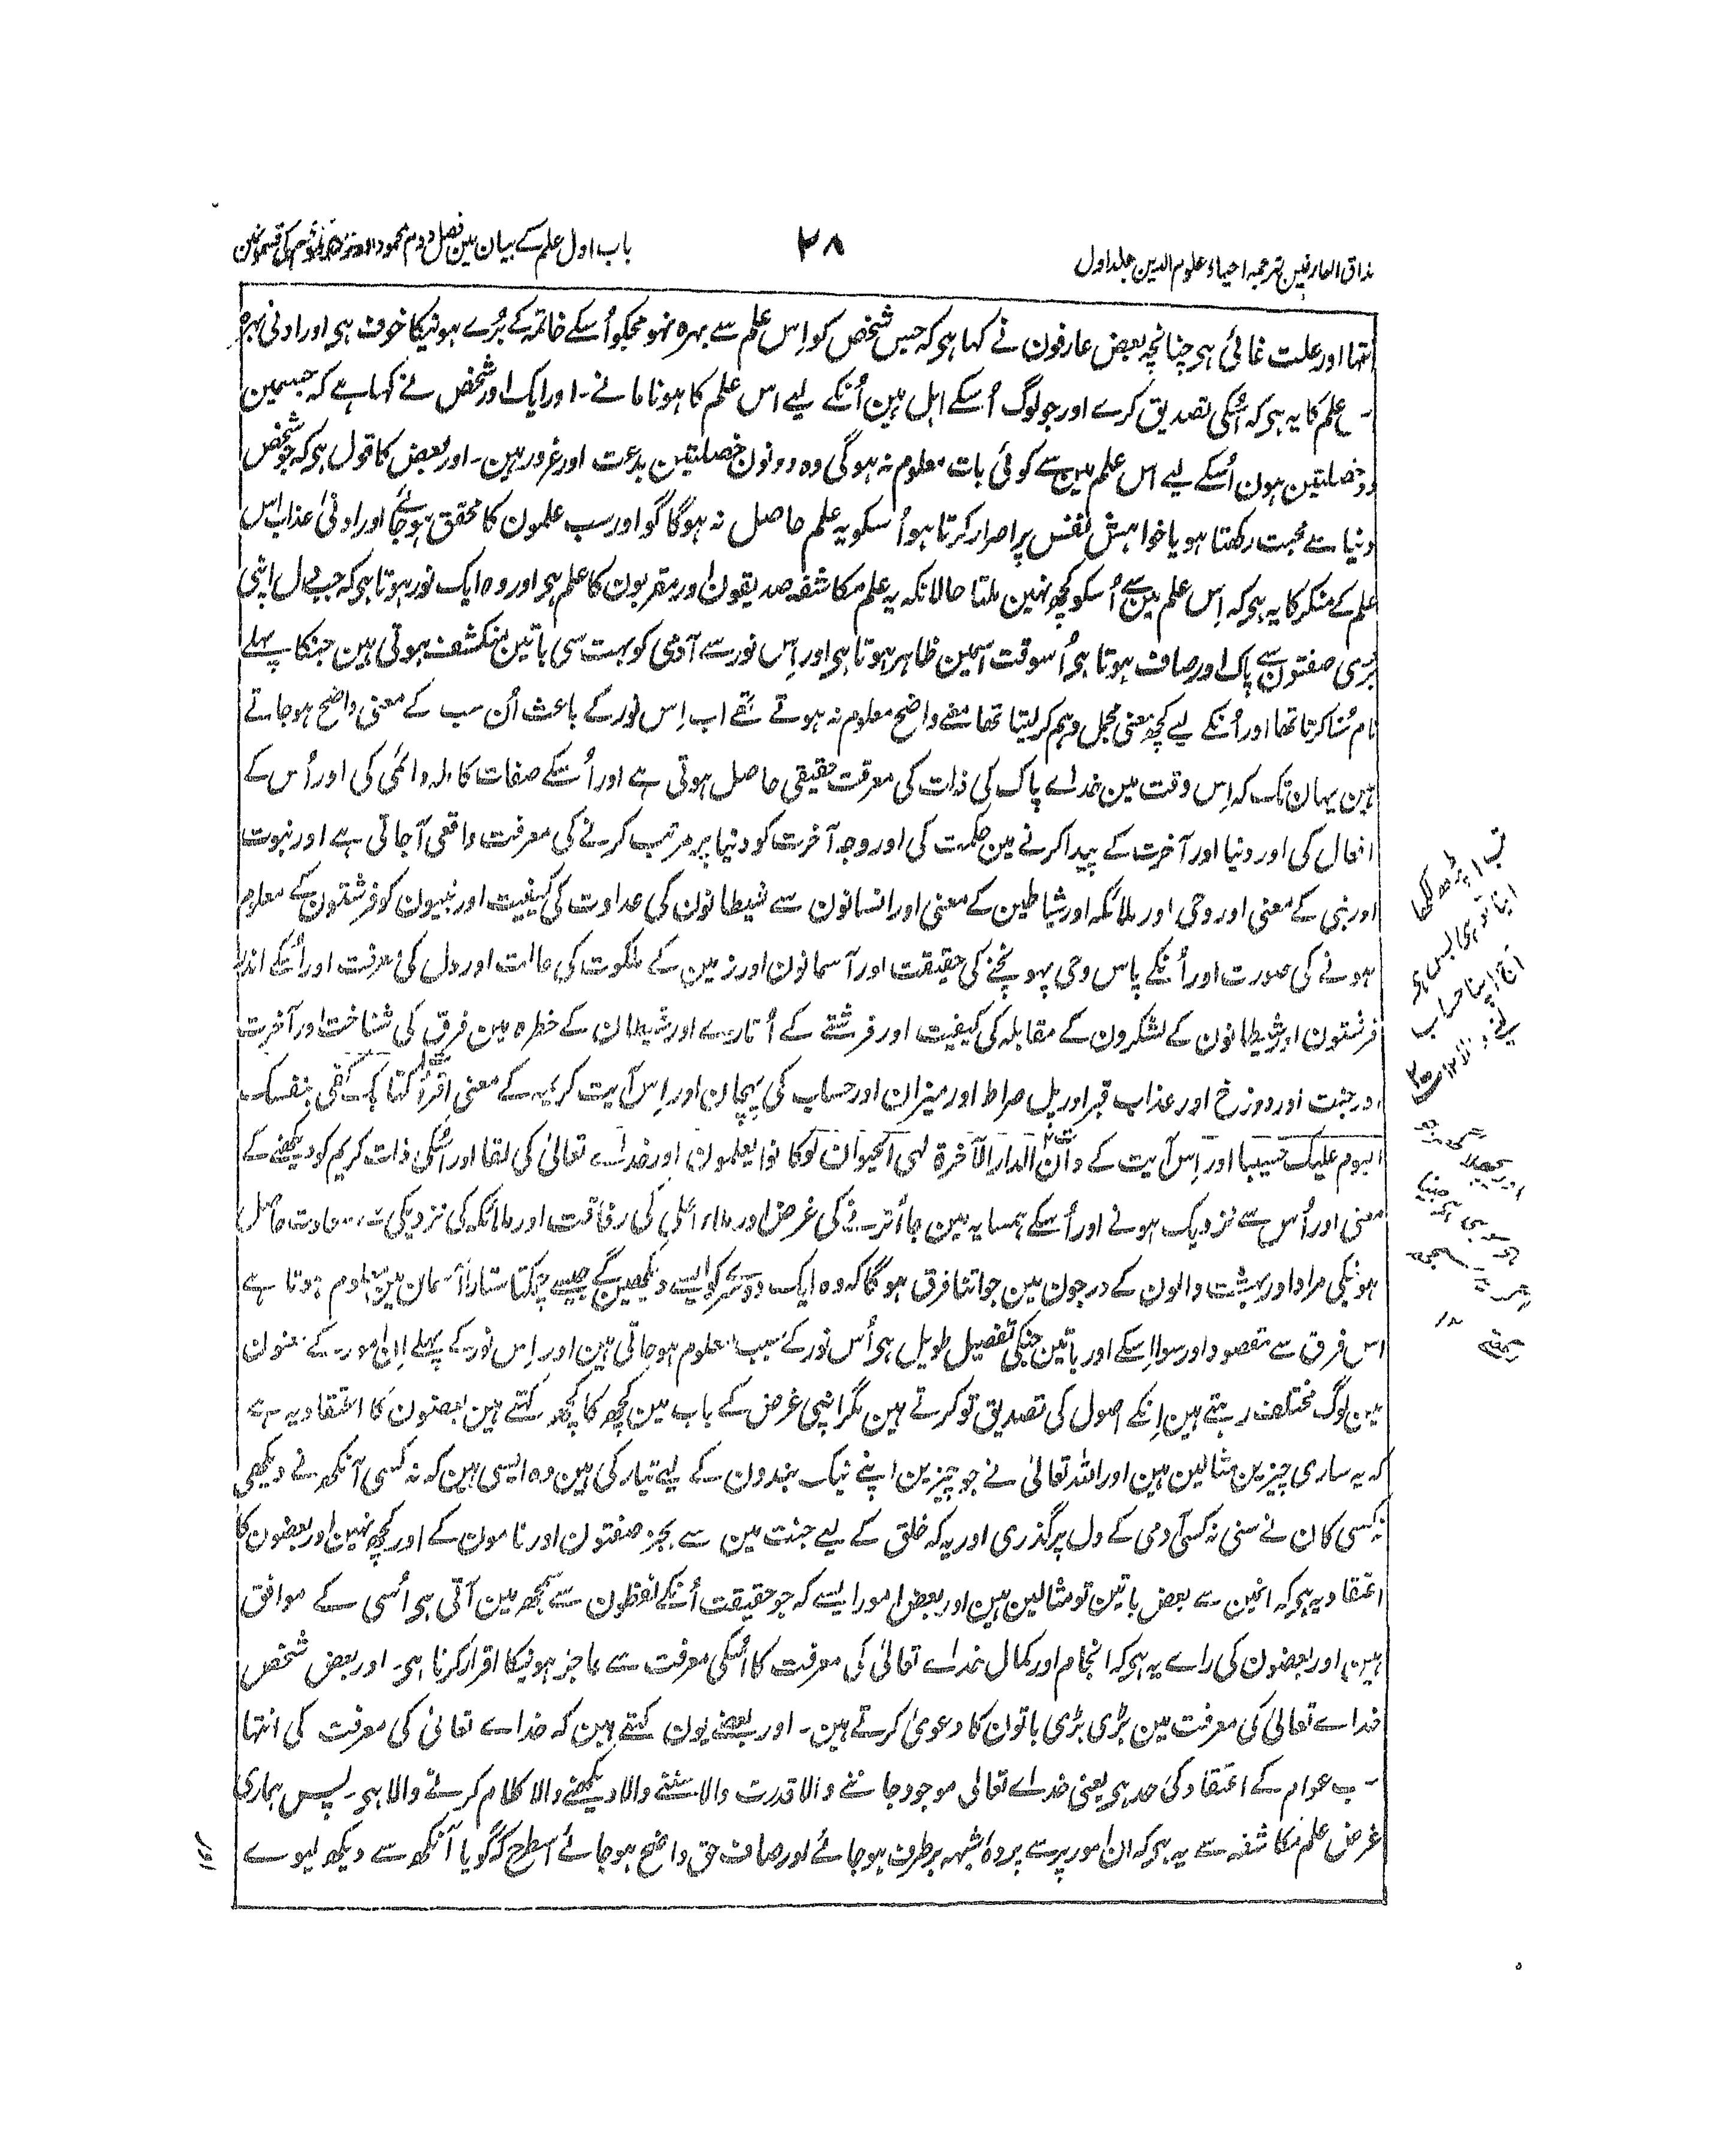 مذاق العارفین ترجمہ احیاء علوم الدین جلد اول
۲۸
باب اول علم کے بیان مین فصل دوم محمود اور مذموم علوم کی قسمونمین
انتہا اور علت غائی ہی چنانچہ بعض عارفون نے کہا ہی کہ جس شخص کو اِس علم سے بہرہ نہو مجکو اُسکے خاتمہ کے بُرے ہونیکا خوف ہی اور ادنی بہرہ
علم کا یہ ہی کہ اُسکی تصدیق کرے اور جو لوگ اُسکے اہل ہین اُنکے لیے اس علم کا ہونا مانے۔ اور ایک اور شخص نے کہا ہے کہ جسمین
دو خصلتین ہون اُسکے لیے اس علم مین سے کوئی بات معلوم نہ ہوگی وہ دونون خصلتین بدعت اور غرور ہین۔ اور بعض کا قول ہی کہ جو شخص
دنیا سے محبت رکھتا ہو یا خواہش نفس پر اصرار کرتا ہو اُسکو یہ علم حاصل نہ ہوگا گو اور سب علمون کا محقق ہو جائے اور ادنی عذاب اس
علم کے منکر کا یہ ہی کہ اِس علم مین سے اُسکو کچھ نہین ملتا حالانکہ یہ علم مکاشفہ صدیقون اور مقربون کا علم ہی اور وہ ایک نور ہوتا ہی کہ جب دل اپنی
بُری صفتون سے پاک اور صاف ہوتا ہی اُسوقت اسمین ظاہر ہوتا ہی اور اِس نور سے آدمی کو بہت سی باتین منکشف ہوتی ہین جنکا پہلے
نام سُنا کرتا تھا اور اُنکے لیے کچھ معنی مجمل وہم کر لیتا تھا معنے واضح معلوم نہ ہوتے تھے اب اِس نور کے باعث اُن سب کے معنی واضح ہو جاتے
ہین یہان تک کہ اِس وقت مین خداے پاک کی ذات کی معرفت حقیقی حاصل ہوتی ہے اور اُسکے صفات کاملہ دائمی کی اور اُس کے
افعال کی اور دنیا اور آخرت کے پیدا کرنے مین حکمت کی اور وجہ آخرت کو دنیا پر مرتب کرنے کی معرفت واقعی آجاتی ہے اور نبوت
اور نبی کے معنی اور وحی اور ملائکہ اور شیاطین کے معنی اور انسانون سے شیطانون کی عداوت کی کیفیت اور نبیون کو فرشتون کے معلوم
ہونے کی صورت اور اُنکے پاس وحی پہونچنے کی حقیقت اور آسمانون اور زمین کے ملکوت کی حالت اور دل کی معرفت اور اُسکے اندر
فرشتون اور شیطانون کے لشکرون کے مقابلہ کی کیفیت اور فرشتے کے اُتارے اور شیطان کے خطرہ مین فرق کی شناخت اور آخرت
اور جنت اور دوزخ اور عذاب قبر اور پل صراط اور میزان اور حساب کی پہچان اور اِس آیت کریمہ کے معنی اِقْرَأْ کتابک کفی بنفسک
الیوم علیک حسیبا اور اِس آیت کے وان الدار الآخرة لہی الحیوان لو کانوا یعلمون اور خداے تعالیٰ کی لقا اور اُسکی ذات کریم کو دیکھنے کے
معنی اور اُس سے نزدیک ہونے اور اُسکے ہمسایہ مین جا اُترنے کی غرض اور ملاء اعلیٰ کی رفاقت اور ملائکہ کی نزدیکی سے سعادت حاصل
ہونیکی مراد اور بہشت والون کے درجون مین جو اتنا فرق ہوگا کہ وہ ایک دوسرے کو ایسے دیکھین گے جیسے چمکتا ستارا آسمان مین معلوم ہوتا ہے
اس فرق سے مقصود اور سوا اِسکے اور باتین جنکی تفصیل طویل ہی اُس نور کے سبب معلوم ہو جاتی ہین اور اِس نور کے پہلے اِن امور کے معنون
مین لوگ مختلف رہتے ہین اِنکے اصول کی تصدیق تو کرتے ہین مگر اپنی غرض کے باب مین کچھ کا کچھ کہتے ہین بعضون کا اعتقاد یہ ہے
کہ یہ ساری چیزین مثالین ہین اور اللہ تعالیٰ نے جو چیزین اپنے نیک بندون کے لیے تیار کی ہین وہ ایسی ہین کہ نہ کسی آنکھ نے دیکھی
نہ کسی کان نے سنی نہ کسی آدمی کے دل پر گذری اور یہ کہ خلق کے لیے جنت مین سے بجز صفتون اور نامون کے اور کچھ نہین اور بعضون کا
اعتقاد یہ ہی کہ انمین سے بعض باتین تو مثالین ہین اور بعض امور ایسے کہ جو حقیقت اُنکے لفظون سے سمجھ مین آتی ہی اُسی کے موافق
ہین اور بعضون کی راے یہ ہی کہ انجام اور کمال خداے تعالیٰ کی معرفت کا اُسکی معرفت سے عاجز ہونیکا اقرار کرنا ہی۔ اور بعض شخص
خداے تعالیٰ کی معرفت مین بڑی بڑی باتون کا دعویٰ کرتے ہین۔ اور بعضے یون کہتے ہین کہ خداے تعالیٰ کی معرفت کی انتہا
سب عوام کے اعتقاد کی حد ہی یعنی خداے تعالیٰ موجود جاننے والا قدرت والا سننے والا دیکھنے والا کلام کرنے والا ہی۔ پس ہماری
غرض علم مکاشفہ سے یہ ہی کہ ان امور پر سے پردہ شبہہ برطرف ہو جائے اور صاف حق واضح ہو جائے اسطرح کہ گویا آنکھ سے دیکھ لیوے